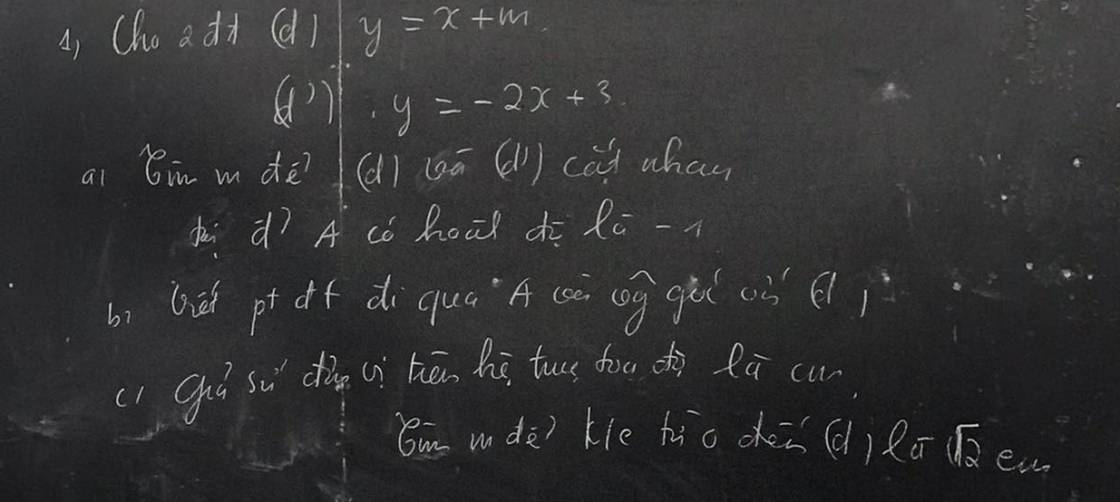 1, Cho 2 đt (d) y = x + m.
(d') . y = -2x + 3
a, Tìm m để (d) và (d') cắt nhau
tại đ' A có hoành độ là -1
b, Viết pt đt đi qua A và vg góc với (d)
c, Giả sử đơn vị trên hệ trục tọa độ là cm
Tìm m để k/c từ O đến (d) là √2 cm